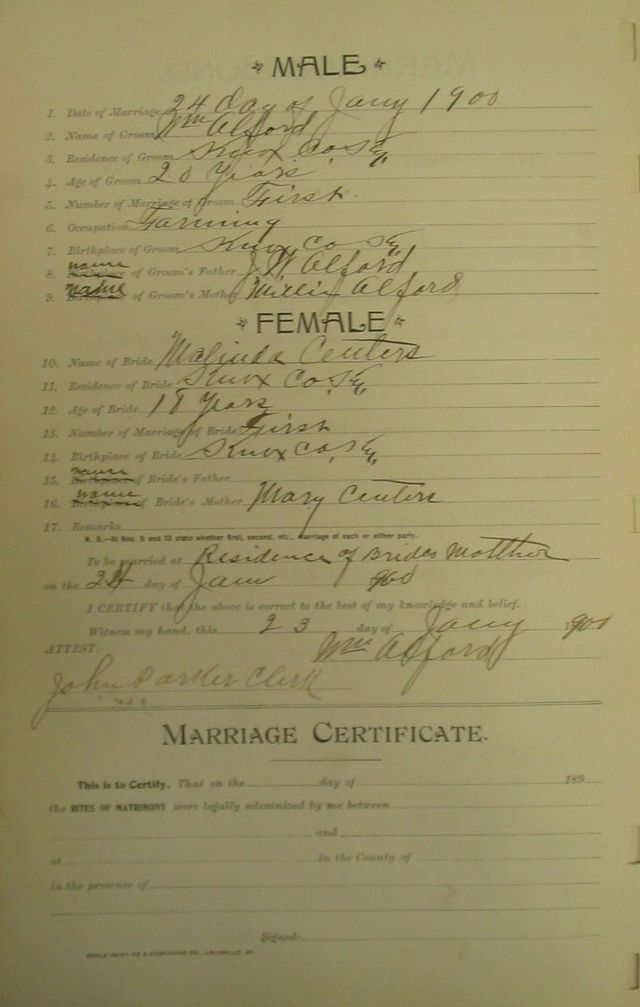 MALE
1. Date of Marriage 24 day of Jany 1900
2. Name of Groom Wm Alford
3. Residence of Groom Knox Co Ky,
4. Age of Groom 20 Years
5. Number of Marriage of Groom First
6. Occupation Farming
7. Birthplace of Groom Knox Co Ky,
8. name of Groom's Father J W Alford
9. name of Groom's Mother Millie Alford
FEMALE
10. Name of Bride Malinda Centers
11. Residence of Bride Knox Co Ky,
12. Age of Bride 18 Years
13. Number of Marriage of Bride First
14. Birthplace of Bride Knox Co, Ky,
15. name of Bride's Father
16. name of Bride's Mother Mary Centers
17. Remarks
N. B.—At Nos. 5 and 13 state whether first, second, etc., marriage of each or either party.
To be married at Residence of Brides Motther
on the 24 day of Jany 1900
I CERTIFY that the above is correct to the best of my knowledge and belief.
Witness my hand, this 23 day of Jany 1900
ATTEST: Wm Alford
John Parker Clerk
MARRIAGE CERTIFICATE.
This is to Certify, That on the day of 189
the RITES OF MATRIMONY were legally solemnized by me between
and
at in the County of
in the presence of
Signed